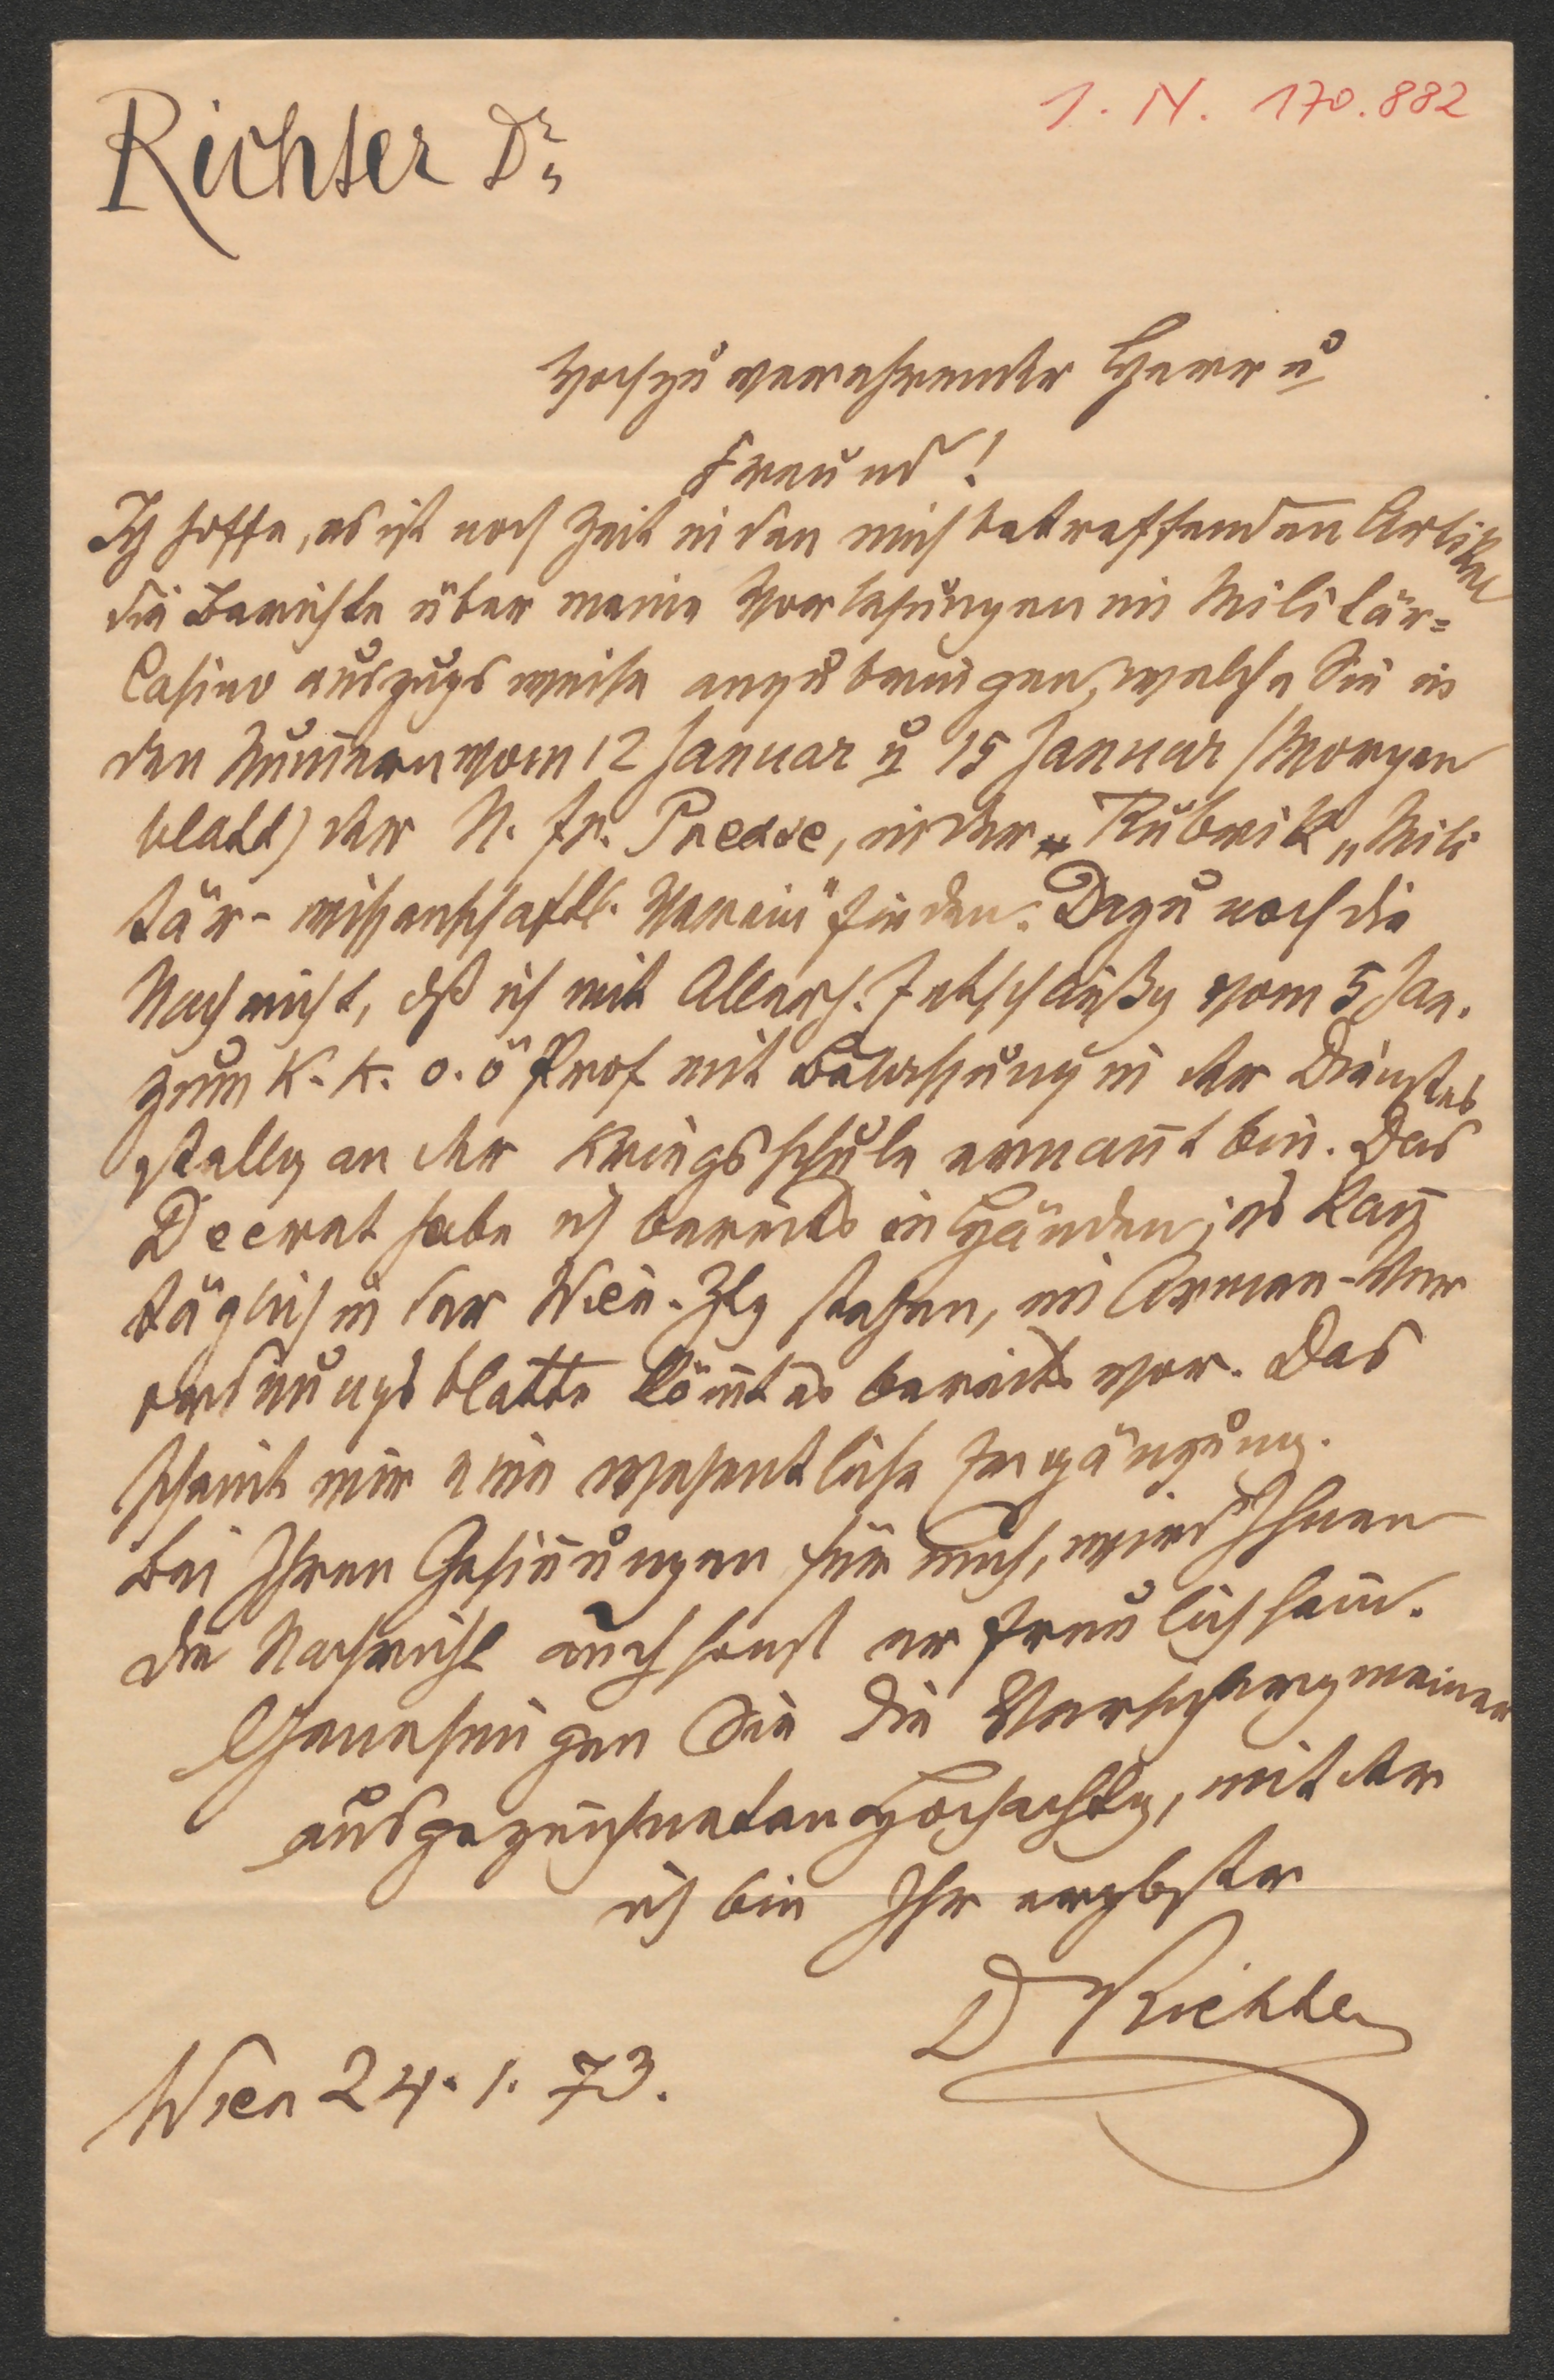 I. N. 170.882
Richter Dr.
Hochzuverehrender Herr u
Freund!
Ich hoffe, es ist noch Zeit in den mich betreffenden Artikel
die Berichte über meine Vorlesungen im Militär=
Casino auszugsweise anzubringen, welche Sie in
den Nummern vom 12 Januar u 15 Januar (Morgen
blatt) der N. fr. Presse, in der Rubrik „Mili
tär-wissenschaftl. Verein" finden. Dazu noch die
Nachricht, dß ich mit Allerh. Entschließg vom 5 Jan.
zum K. K. o. ö Prof mit Belassung in der Dienstes
stellg an der Kriegsschule ernannt bin. Das
Decret habe ich bereits in Händen; es kann
täglich in der Wien. Ztg stehen, im Armee-Ver
ordnungsblatte kömmt es bereits vor. Das
scheint mir eine wesentliche Ergänzung.
Bei Ihren Gesinnungen für mich, wird Ihnen
die Nachricht auch sonst erfreulich sein.
Genehmigen Sie die Versicherg meiner
ausgezeichneten Hochachtg, mit der
ich bin Ihr ergbster
D Richter
Wien 24. 1. 73.